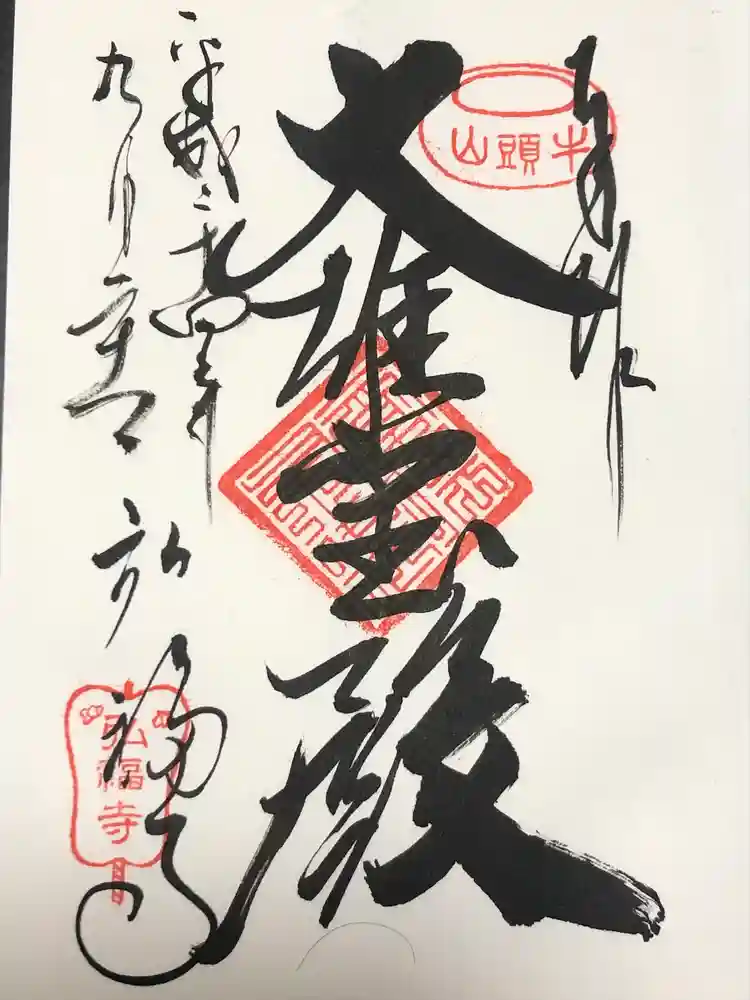 奉拝
牛頭山
大雄宝殿
平成二十四年
九月
弘福寺
弘福寺